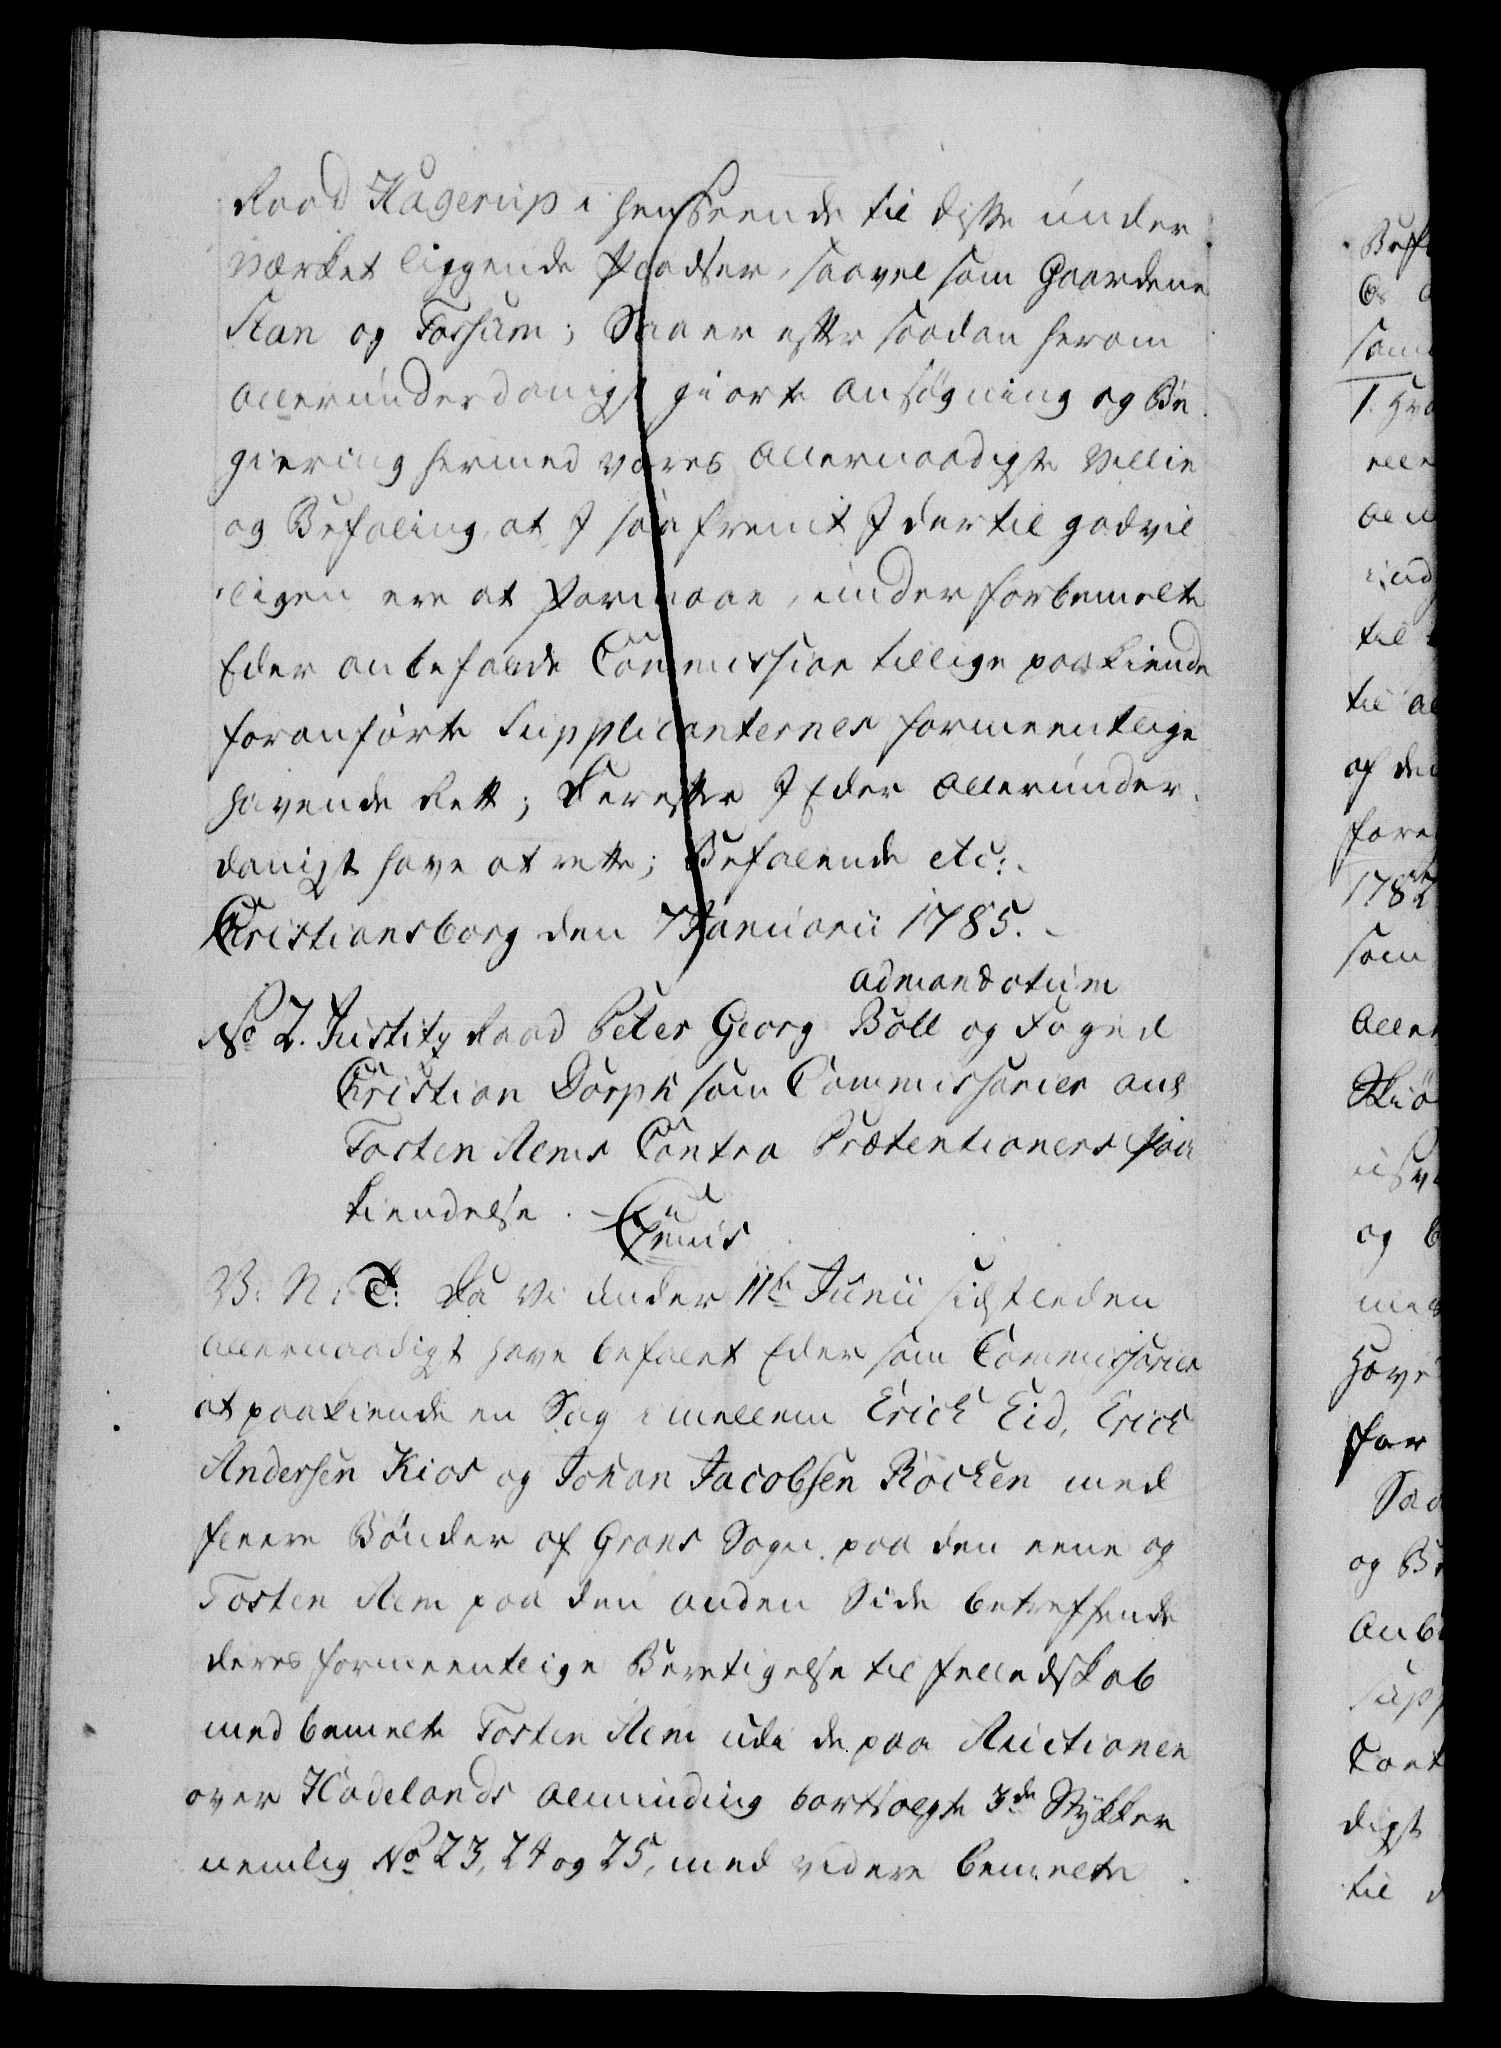 Raad Hagerup i henseende til disse under
Værket liggende Pladser, saavel som Gaardene
Stan og Fossum; Saa er efter saadan herom
allerunderdanigst giorte Ansøgning og Be
giering hermed vores allernaadigste Villie
og Befaling, at I saafremt I dertil godvil
ligen ere at formaae, under forbemelte
Eder anbefalede Commission tillige paakiende
foranførte Supplicanternes formeentlige
havende Rett; Derefter I Eder allerunder
danigst have at rette; Befalende etc:
Christiansborg den 7 Januarii 1785.
ad mandatum
No 2. Justitz Raad Peter Georg Böll og Foged
Christian Dorph som Commissarier anl
Tosten Rems Contra Prætentioners Paa
kiendelse.
V: N: C: Da Vi under 11te Junii sidstleden
allernaadigst have befalet Eder som Commissarier
at paakiende en Sag imellem Erick Eid, Erick
Andersen Kios og Johan Jacobsen Röcken med
fleere Bønder af Grans Sogn paa den eene og
Tosten Rem paa den anden Side betreffende
deres formeentlige Berettigelse til fælledskab
med bemelte Tosten Rem udi de paa Auctionen
over Hadelands Alminding bortsolgte 3de Stykker
nemlig No 23, 24 og 25, med videre bemelte